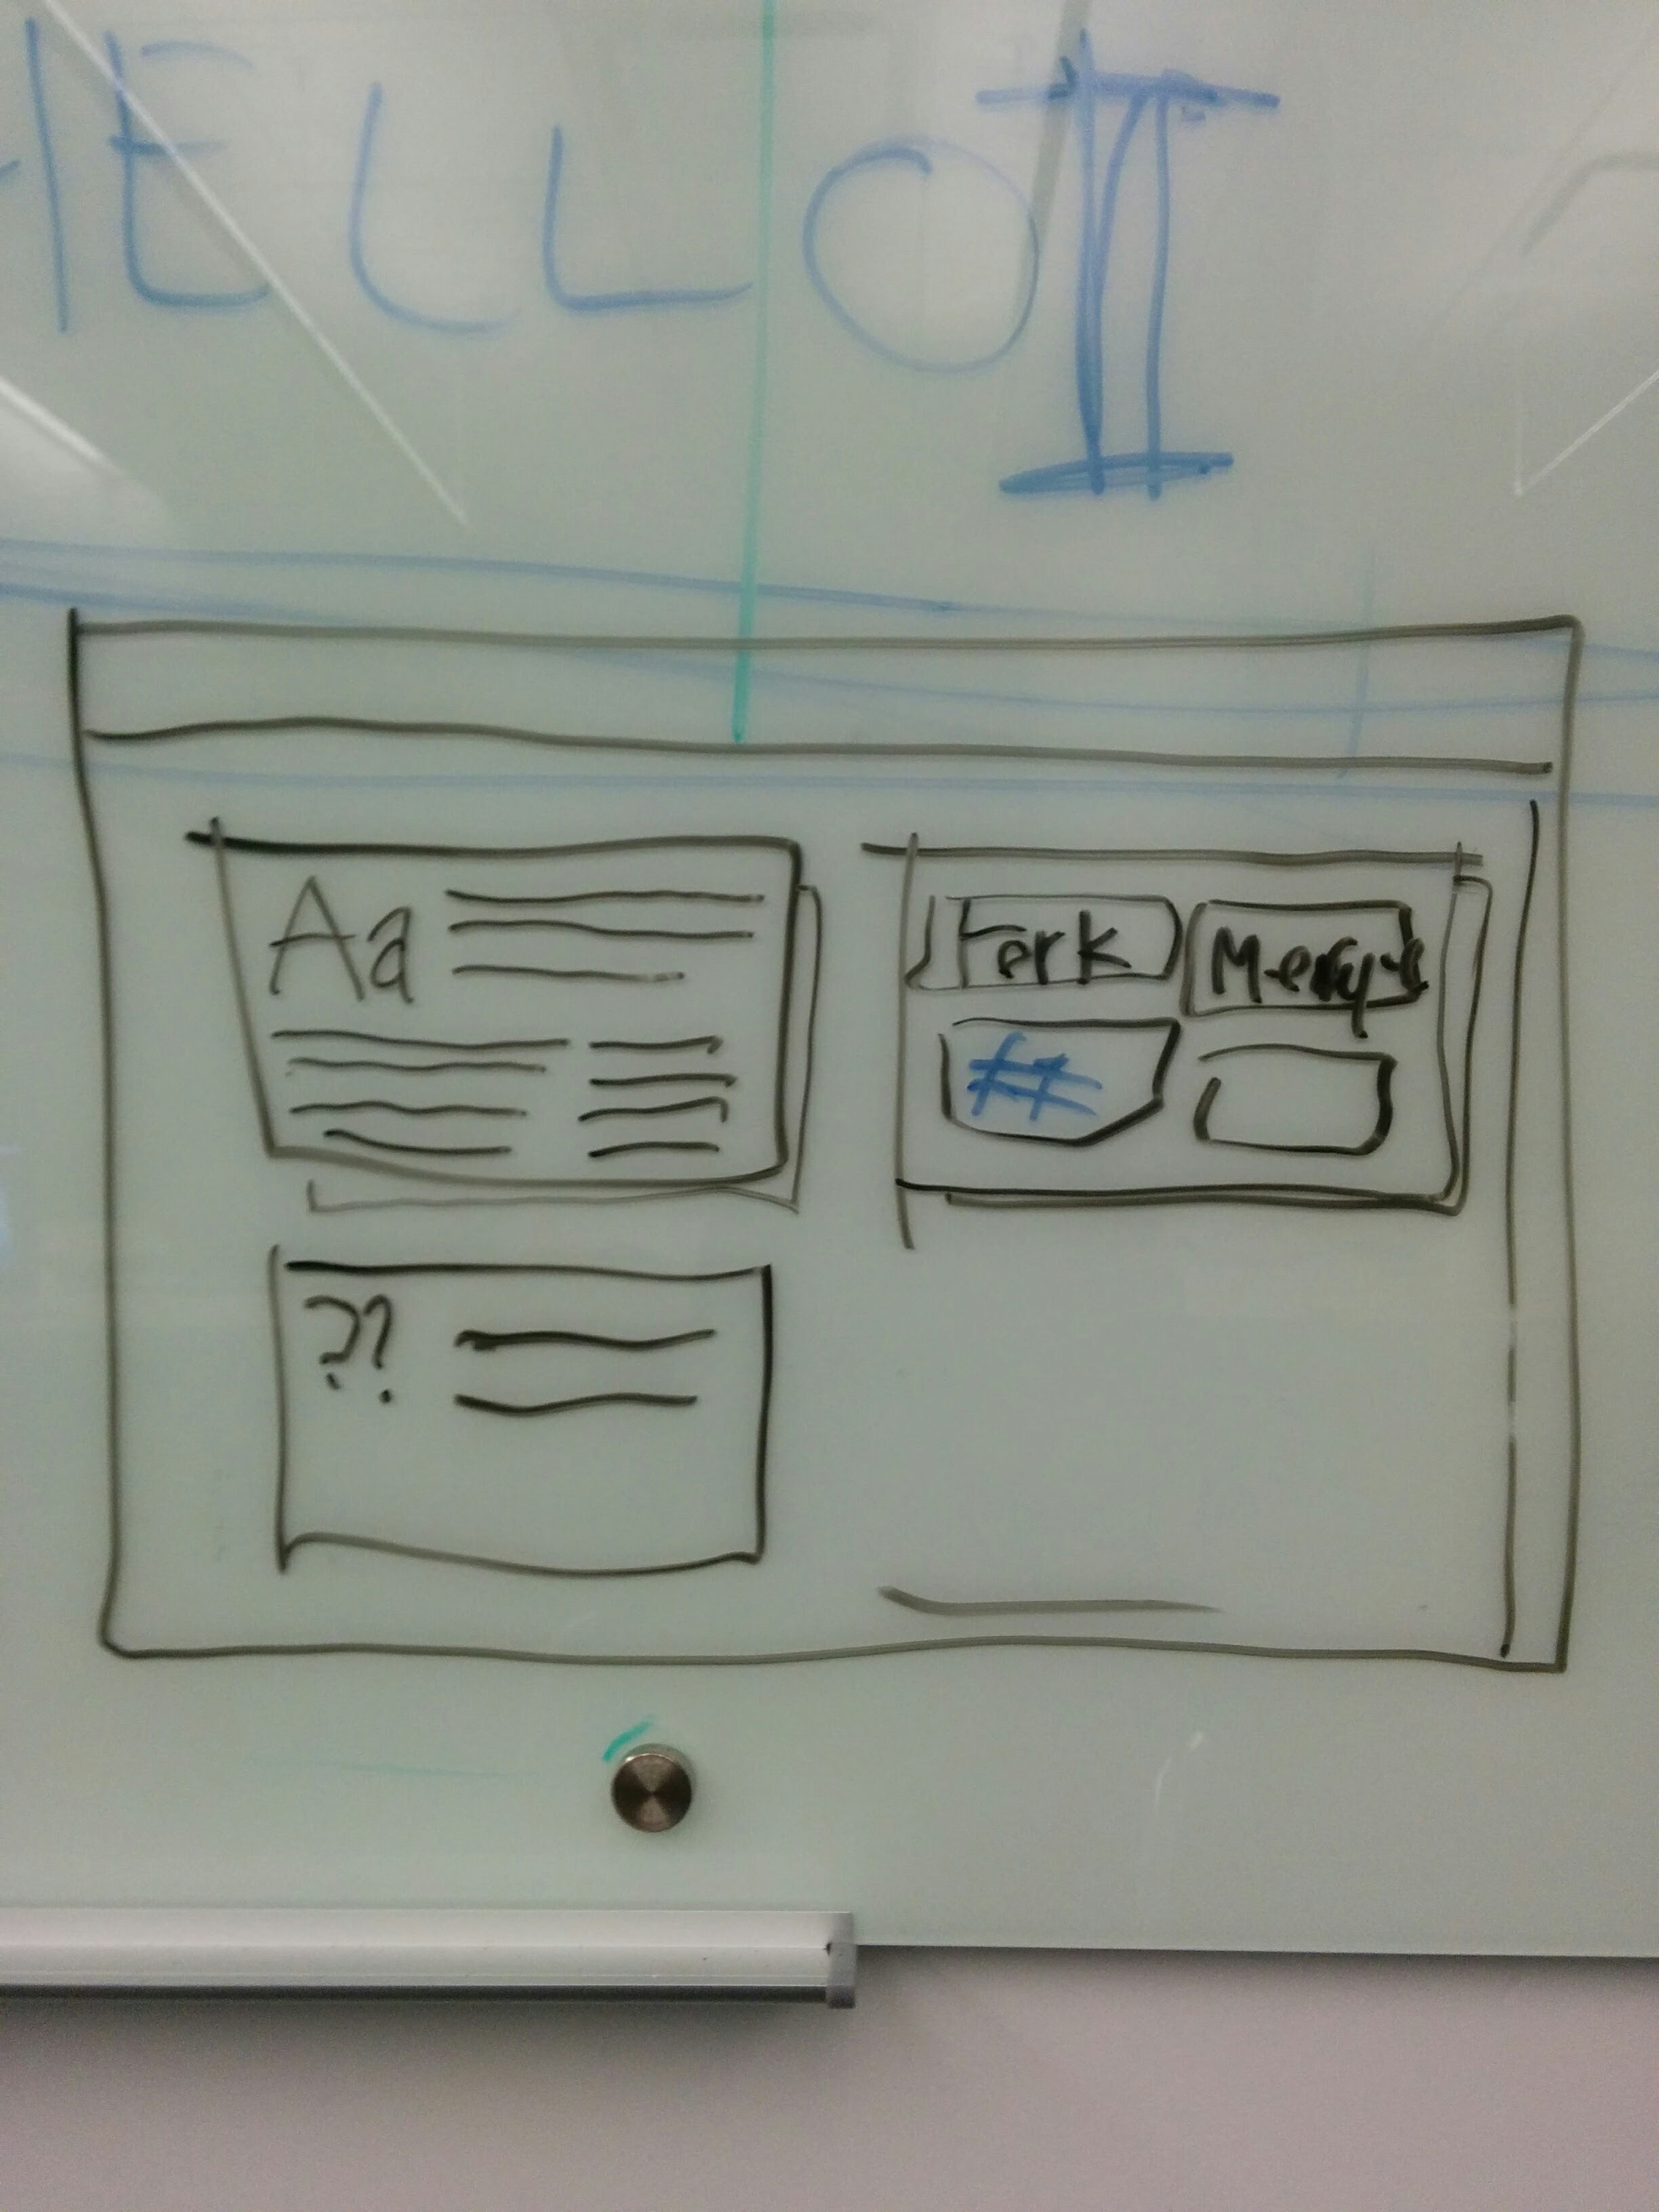 HELLO II
Aa
Fork Merge
??